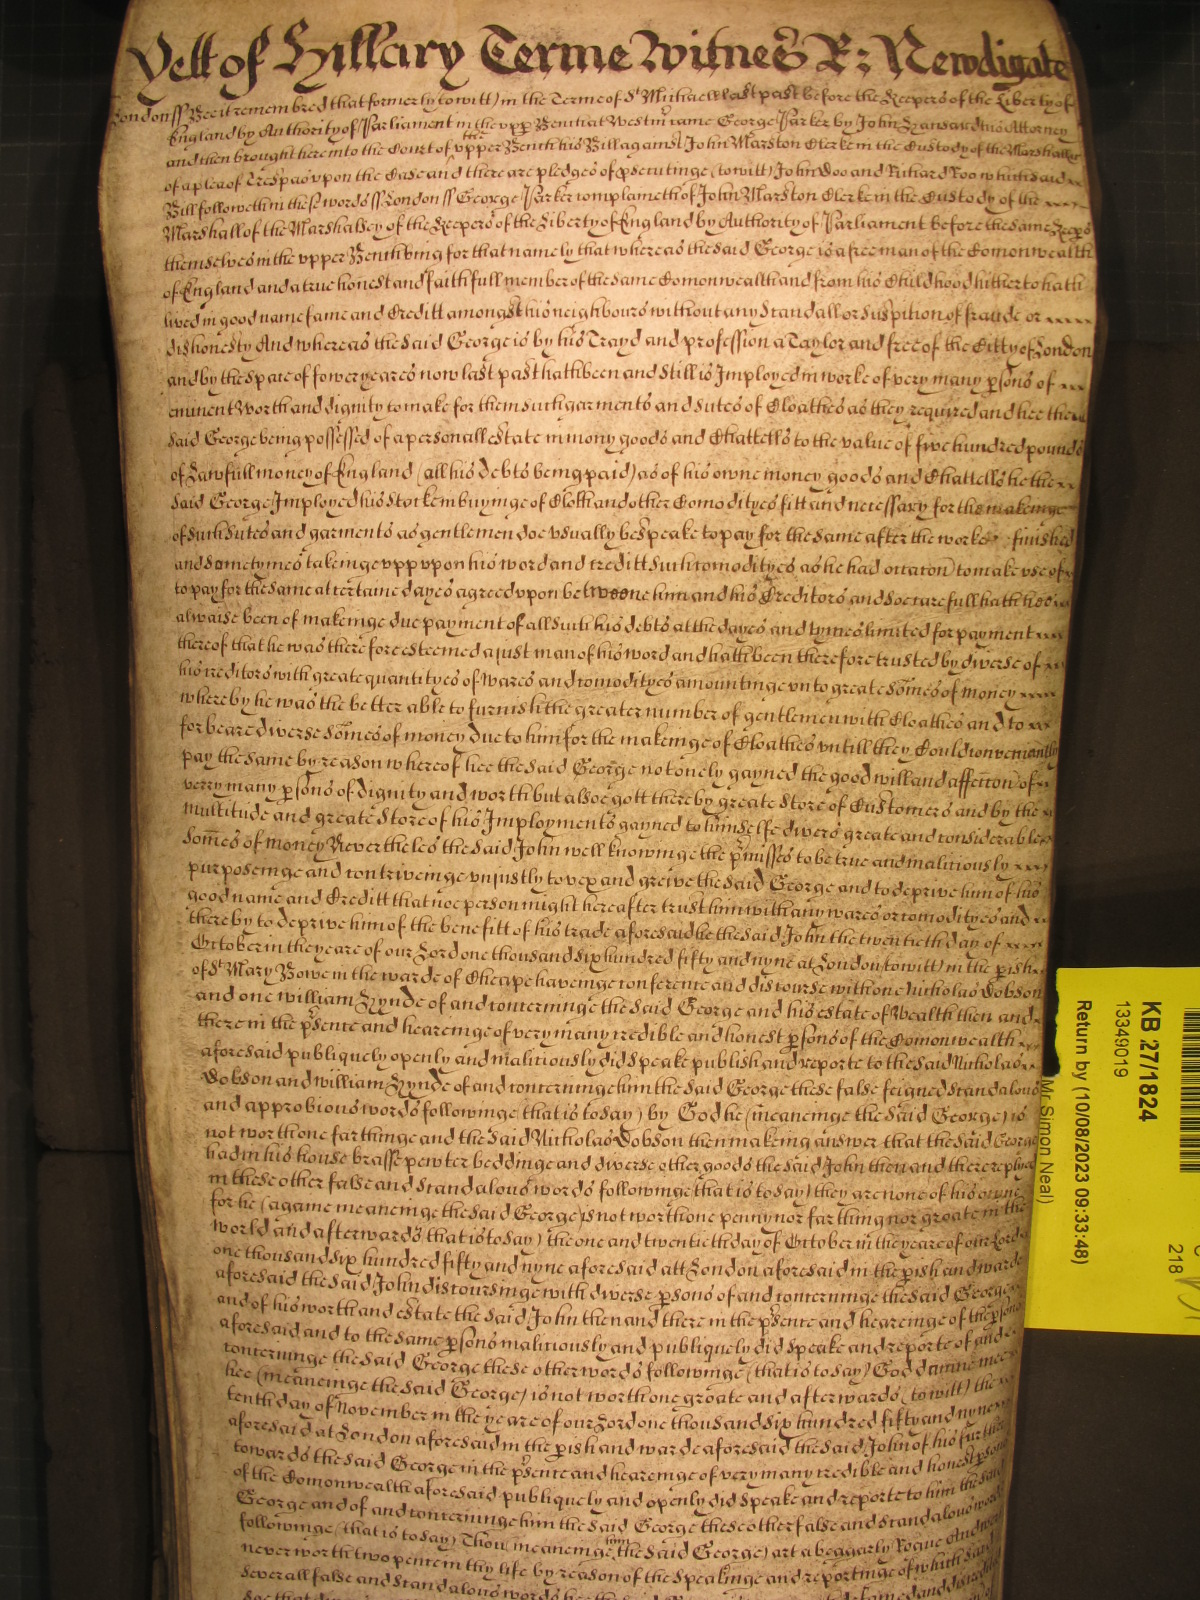 Yett of Hillary Terme Witnes R: Newdigate
London ss Bee it remembred that formerly (to witt) in the Terme of St Michaell last past before the Keepers of the Liberty of
England by Authority of Parliament in the vpp Bench at Westm̃ came George Parker by John Hansard his Attorney
and then brought here into the Court of the vpper Bench his Bill against John Marston Clerke in the Custody of the Marshall &c
of a plea of Trespas vpon the Case and there are pledges of p̱secutinge (to witt) John Doo and Richard Roo which said
Bill followeth in thes words ss London ss George Parker complaineth of John Marston Clerke in the Custody of the
Marshall of the Marshalsey of the Keepers of the Liberty of England by Authority of Parliament before the same Keeps
themselves in the vpper Bench being for that namely that whereas the said George is a free man of the Comonwealth
of England and a true honest and faithfull member of the same Comonwealth and from his Childhood hitherto hath
lived in good name fame and Creditt amongst his neighbours without any scandall or suspition of fraude or
dishonesty And whereas the said George is by his Trayd and profession a Taylor and free of the Citty of London
and by the space of fower yeares now last past hath been and still is Imployed in worke of very many p̱sons of
eminent worth and dignity to make for them such garments and sutes of Cloathes as they required and hee the
said George being possessed of a personall estate in mony goods and Chattells to the value of five hundred pounds
of Lawfull money of England (all his Debts being paid) as of his owne money goods and Chattells he the
said George Imployed his stocke in buyinge of Cloth and other Comodityes fitt and necessary for the makeinge
of such sutes and garments as gentlemen doe vsually bespeake to pay for the same after the worke finished
and sometymes takeinge vpp vpon his word and creditt such comodityes as he had occation to make vse of
to pay for the same at certaine dayes agreed vpon betweene him and his Creditors and soe carefull hath hee
alwaise been of makeinge due payment of all such his debts at the dayes and tymes limited for payment
thereof that he was therefore esteemed a just man of his word and hath been therefore trusted by diverse of
his creditors with greate quantityes of wares and comodityes amountinge vnto greate som̄es of money
whereby he was the better able to furnish the greater number of gentlemen with Cloathes and to
forbeare diverse som̄es of money due to him for the makeinge of Cloathes vntill they Could conveniently
pay the same by reason whereof hee the said George not onely gayned the good will and affection of
verry many p̱sons of dignity and worth but alsoe gott thereby greate store of Customers and by the
multitude and greate store of his Imployments gayned to himselfe divers greate and considerable
som̄es of money Neverthelesse the said John well knowinge the p̱misses to be true and malitiously
purposeinge and contriveinge vnjustly to vex and greive the said George and to deprive him of his
good name and Creditt that noe person might hereafter trust him with any wares or comodityes and
thereby to deprive him of the benefitt of his trade aforesaid he the said John the twentieth day of
October in the yeare of our Lord one thousand six hundred fifty and nyne at London (to witt) in the p̱ish
of St Mary Bowe in the warde of Cheape haveinge conference and discourse with one Nicholas Dobson
and one William Hynde of and concerninge the said George and his estate of Wealth then and
there in the p̱sence and heareinge of very many credible and honest p̱sons of the Comonwealth
aforesaid publiquely openly and malitiously did speake publish and reporte to the said Nicholas
Dobson and William Hynde of and concerninge him the said George these false feigned scandalous
and approbious words followinge (that is to say) by God he (meaneinge the said George) is
not worth one farthinge and the said Nicholas Dobson then makeing answer that the said George
had in his house brasse pewter beddinge and diverse other goods the said John then and there replyed
in these other false and scandalous words followinge that is to say) they are none of his owne
for he (againe meaneinge the said George) is not worth one penny nor farthing nor groate in the
world and afterwards (that is to say) the one and twentieth day of October in the yeare of our Lord
one thousand six hundred fifty and nyne aforesaid att London aforesaid in the p̱ish and warde
aforesaid the said John discoursinge with diverse p̱sons of and concerninge the said George
and of his worth and estate the said John then and there in the p̱sence and heareinge of the p̱sons
aforesaid and to the same p̱sons malitiously and publiquely did speake and reporte of and
concerninge the said George these other words followinge (that is to say) God damme mee
hee (meaneinge the said George) is not worth one groate and afterwards (to witt) the
tenth day of November in the yeare of our Lord one thousand six hundred fifty and nyne
aforesaid at London aforesaid in the p̱ish and warde aforesaid the said John of his further
towards the said George in the p̱sence and heareinge of very many credible and honest p̱sons
of the Comonwealth aforesaid publiquely and openly did speake and reporte to him the said
George and of and concerninge him the said George these other false and scandalous words
followinge (that is to say) Thou (meaneinge him the said George) art a beggarly Rogue And wert
never worth two pence in thy life by reason of the speakinge and reportinge of which said
severall false and scandalous words
KB 27/1824
13349019
Return by (10/08/2023 09:33:48)
Mr Simon Neal)
218